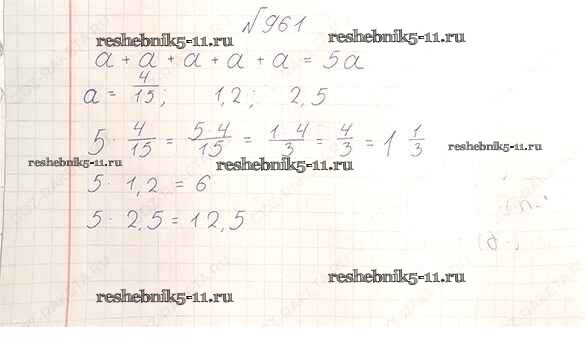 №961
reshebnik5-11.ru reshebnik5-11.ru
a + a + a + a + a = 5a
a = 4/15; 1,2; 2,5
5 · 4/15 = 5·4/15 = 1·4/3 = 4/3 = 1 1/3
reshebnik5-11.ru reshebnik5-11.ru reshebnik5-11.ru
5 · 1,2 = 6
5 · 2,5 = 12,5
reshebnik5-11.ru reshebnik5-11.ru